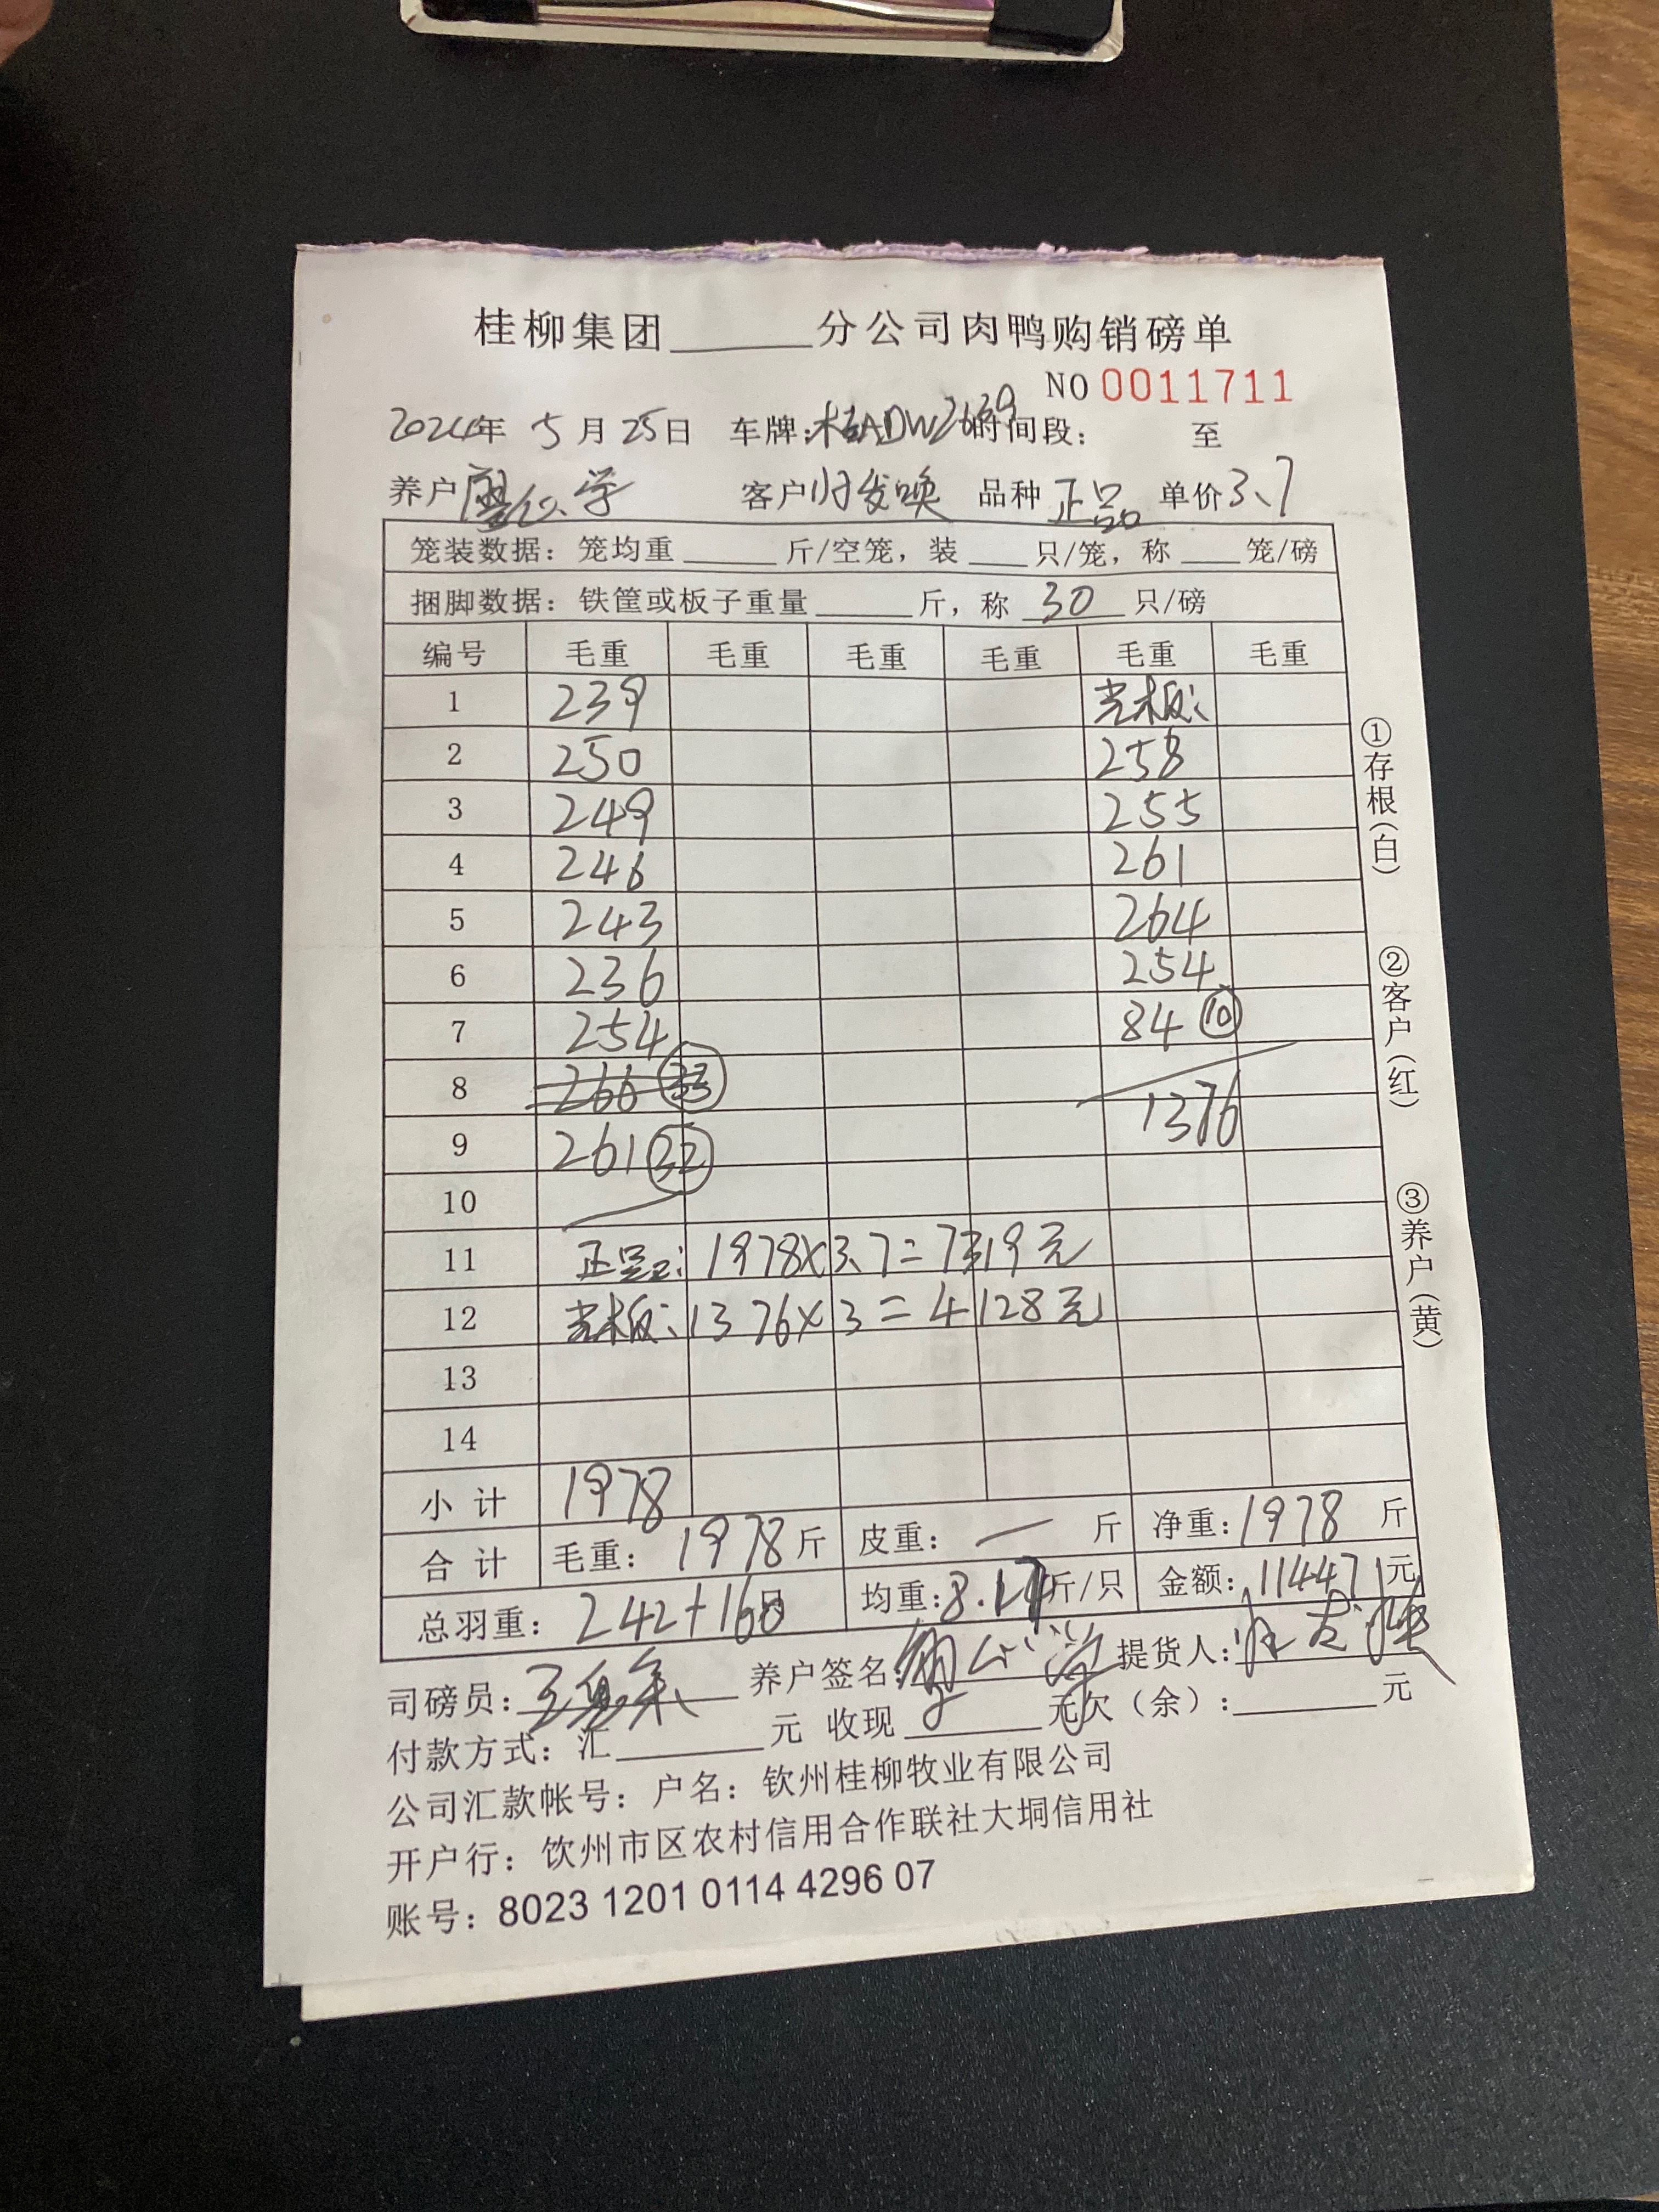 桂柳集团______分公司肉鸭购销磅单
NO 0011711
2024年 5月25日 车牌:桂ADW2639 时间段: 至
养户 客户 品种 正品 单价3.7
笼装数据: 笼均重______斤/空笼, 装____只/笼, 称____笼/磅
捆脚数据: 铁筐或板子重量______斤, 称 30 只/磅
编号 毛重 毛重 毛重 毛重 毛重 毛重
1 239 光板:
2 250 258
3 249 255
4 246 261
5 243 264
6 236 254
7 254 84 ⑩
8 266 33
9 261 32 1376
10
11 正品: 1978×3.7=7319元
12 光板: 1376×3=4128元
13
14
小计 1978
合计 毛重: 1978斤 皮重: — 斤 净重: 1978 斤
总羽重: 242+160 均重: 8.17斤/只 金额: 11447元
司磅员: 养户签名: 提货人:
付款方式: 汇______元 收现______元欠(余):______元
公司汇款帐号: 户名: 钦州桂柳牧业有限公司
开户行: 钦州市区农村信用合作联社大垌信用社
账号: 8023 1201 0114 4296 07
①存根(白)
②客户(红)
③养户(黄)